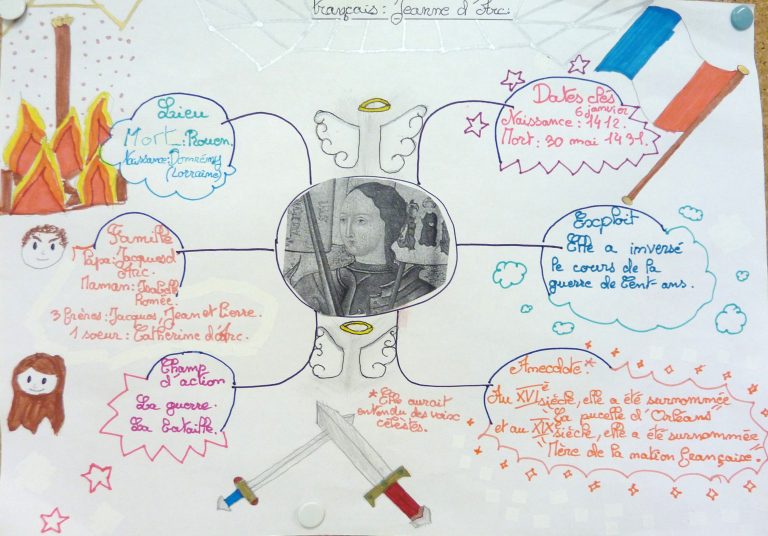 Français: Jeanne d'Arc.
Lieu
Mort : Rouen.
Naissance: Domrémy
(Lorraine)
Dates clés
6 janvier
Naissance : 1412.
Mort : 30 mai 1431.
Famille
Papa: Jacques d'
Arc.
Maman: Isabelle
Romée.
3 frères: Jacques, Jean et Pierre.
1 soeur: Catherine d'Arc.
Exploit
Elle a inversé
le cours de la
guerre de Cent-ans.
Champ
d'action
La guerre.
La bataille.
* Elle aurait
entendu des voix
célestes.
Anecdote: *
Au XVIe siècle, elle a été surnommée
"La pucelle d'Orléans"
et au XIXe siècle, elle a été surnommée
"Mère de la nation française".